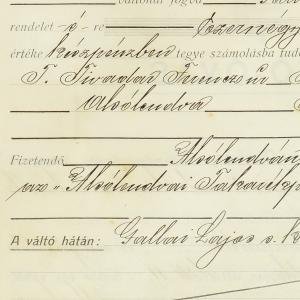 rendelet -é- re Ezernégy
értéke készpénzben tegye számolásba tud
T. Tivadar Ferencz úr
Alsólendva
Fizetendő Alsólendván
az „Alsólendvai Takarékp
A váltó hátán: Gallai Lajos s. k